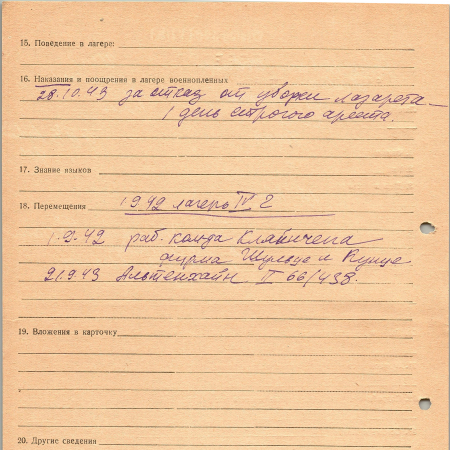 15. Поведение в лагере:
16. Наказания и поощрения в лагере военнопленных
28.10.43 за отказ от уборки лазарета –
1 день строгого ареста.
17. Знание языков
18. Перемещения 1942 лагерь IV Г
1.9.42 раб. кол-да
фирма Шульце и Кунце
21.9.43 Альтенхайн. I 66/438.
19. Вложения в карточку
20. Другие сведения